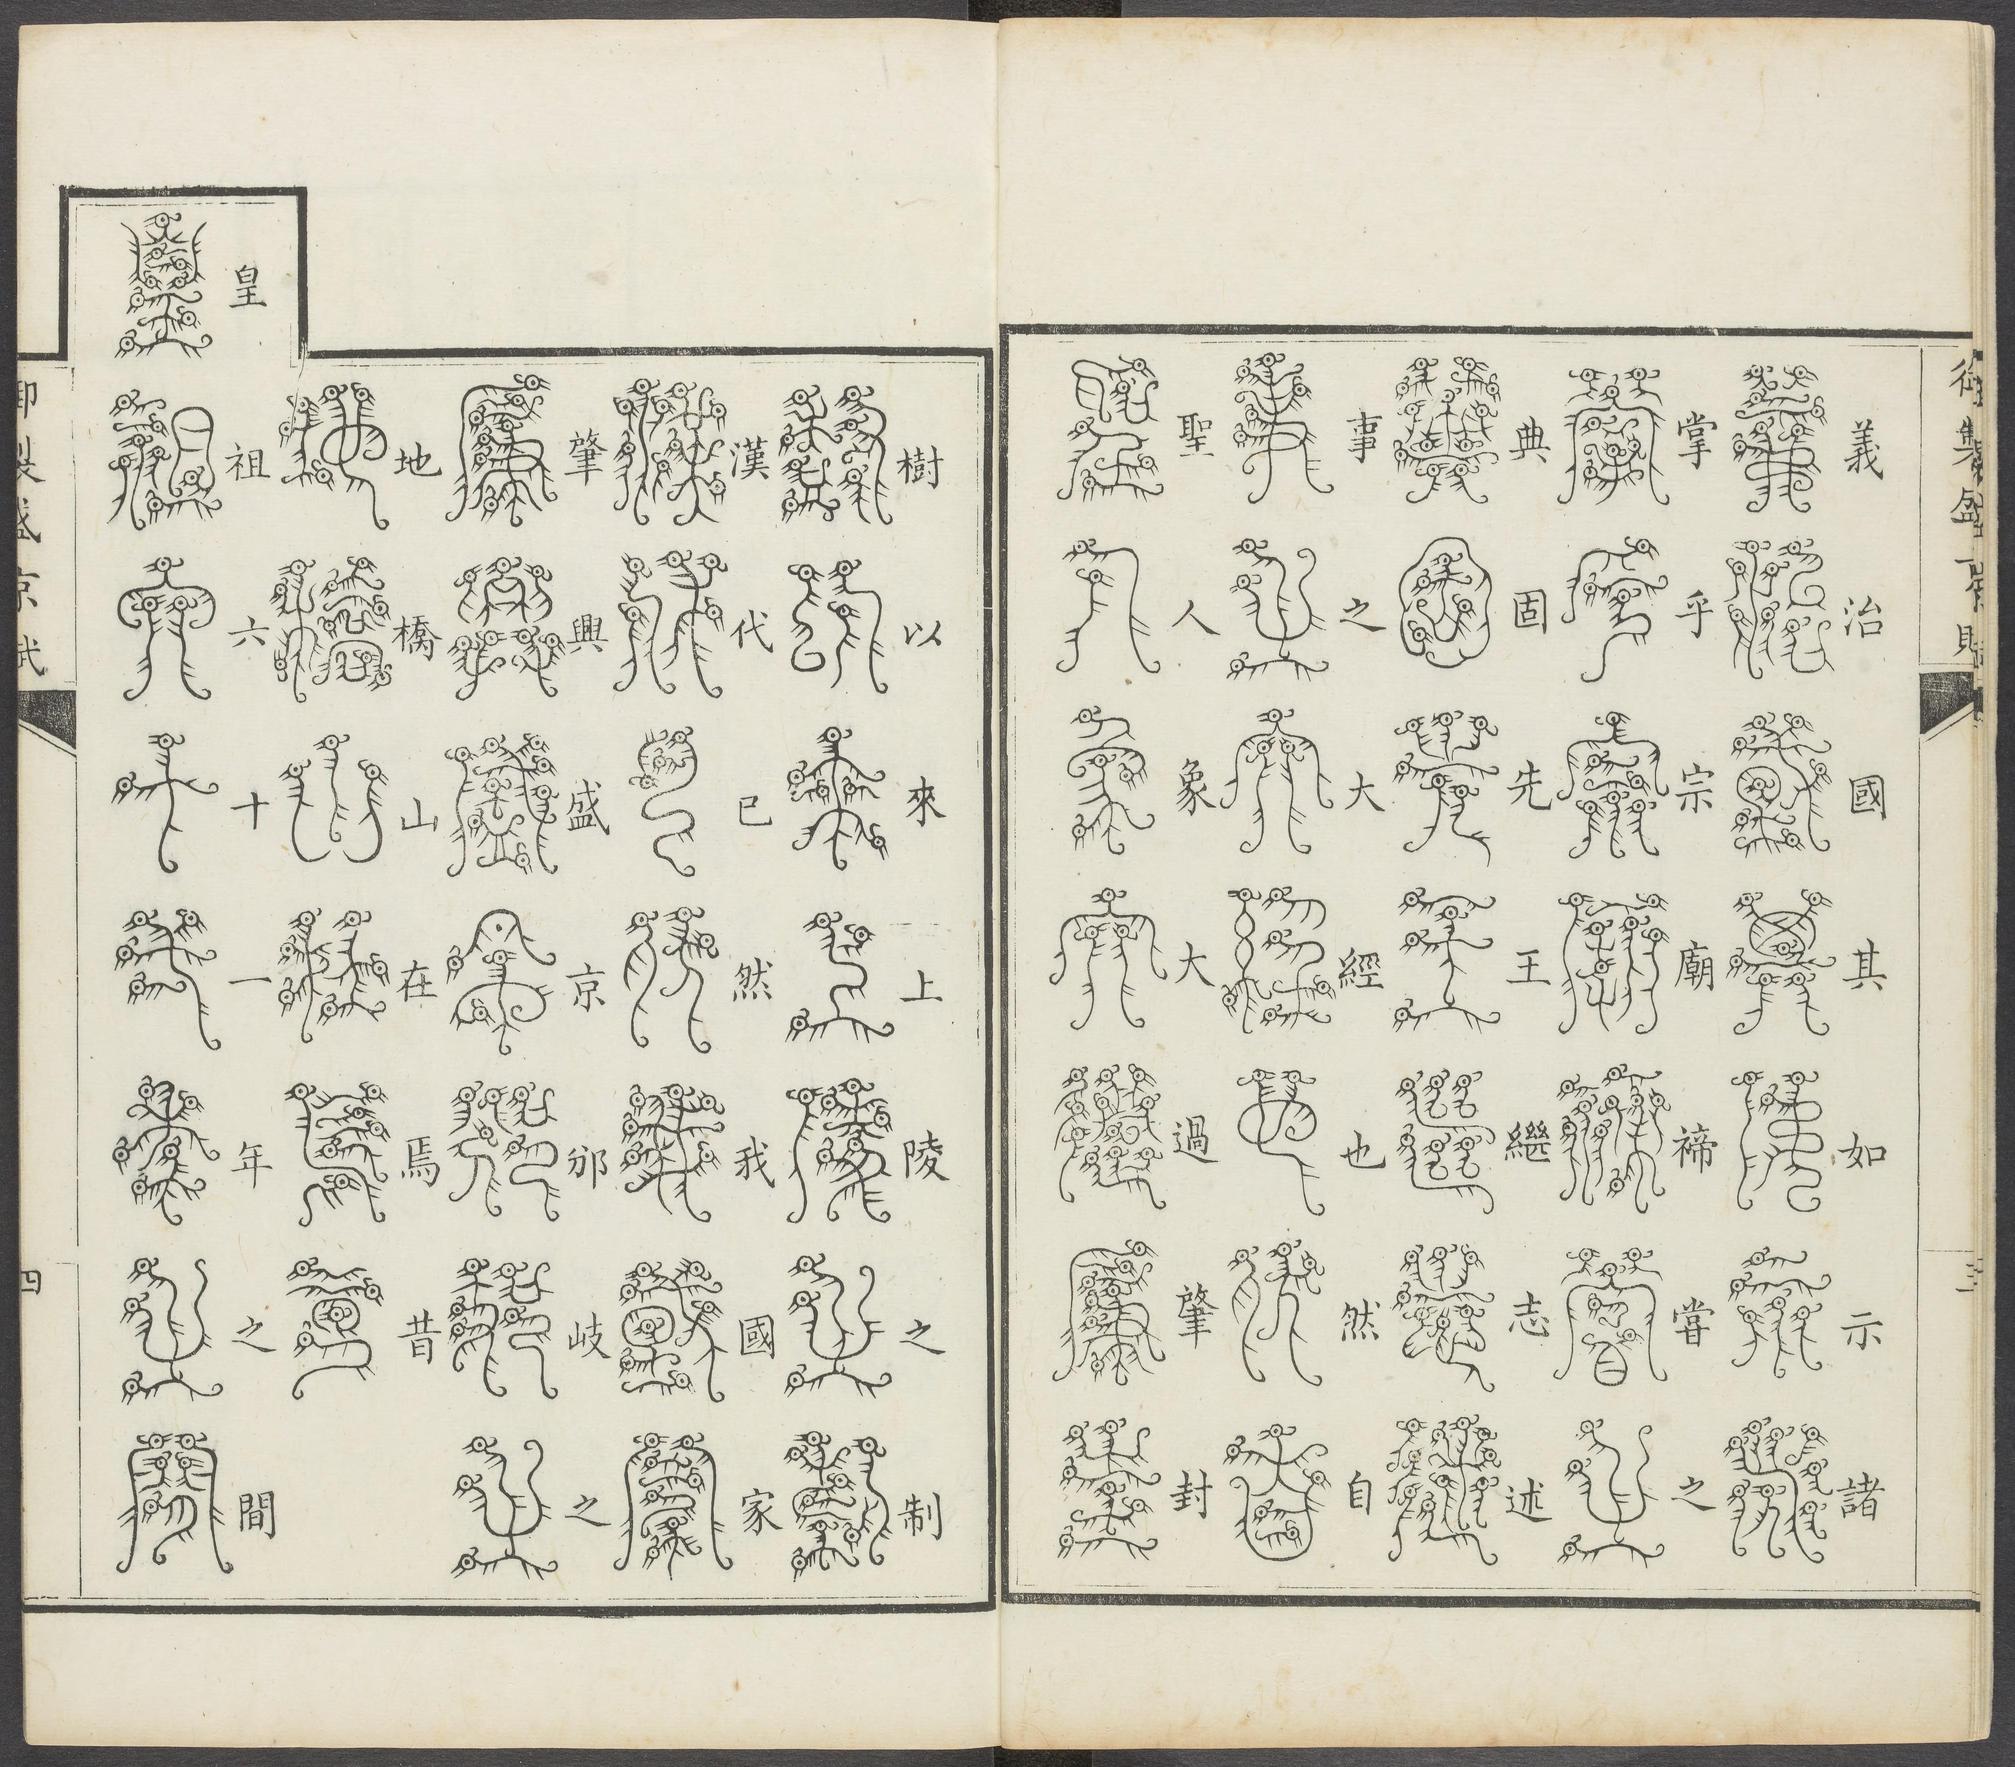 御製盛京賦
三
義治國其如示諸
掌乎宗廟禘嘗之
典固先王繼志述
事之大經也然自
聖人象大過肇封
樹以來上陵之制
漢代已然我國家
肇興盛京邠岐之
地橋山在焉昔
皇祖六十一年之間
御製盛京賦
四